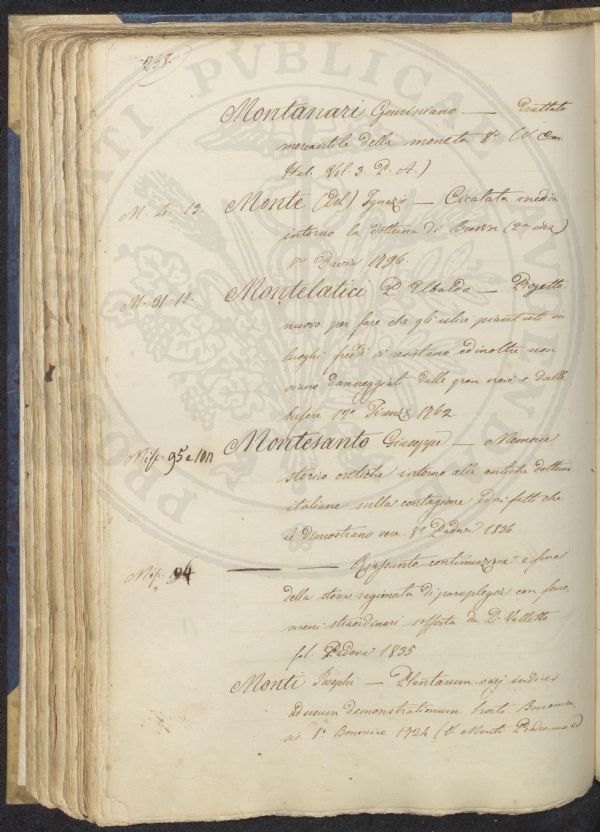 258
Montanari Geminiano — Trattato
mercantile della moneta 8.° (V.
Ital. Vol. 3. P. A.)
M. 4. 13. Monte (Del) Ignazio — Cicalata medica
intorno la dottrina di Brown (2ª ediz)
8.° Pavia 1796.
M. 31. 10. Montelatici P. Ubaldo — Progetto
nuovo per fare che gli ulivi piantati in
luoghi freddi di resistano ed inoltre non
siano danneggiati dalle gran nevi e dalle
bufere 12° Firenze 1762.
Misc. 95 e 101 Montesanto Giuseppe — Memorie
storico critiche intorno alle antiche dottrine
italiane sulla contagione ed ai fatti che
le dimostrano vere. 8.° Padova 1836
Misc. 94 — — Riassunto continuazione e fine
della storia ragionata di paraplegia con feno
meni straordinari sofferta da D. Valletto
fol. Padova 1835
Monti Josephi — Plantarum varj indices
ad usum demonstrationum horti Bononien
sis 8.° Bononiae 1724 (V. Monti
PRO PUBLICA